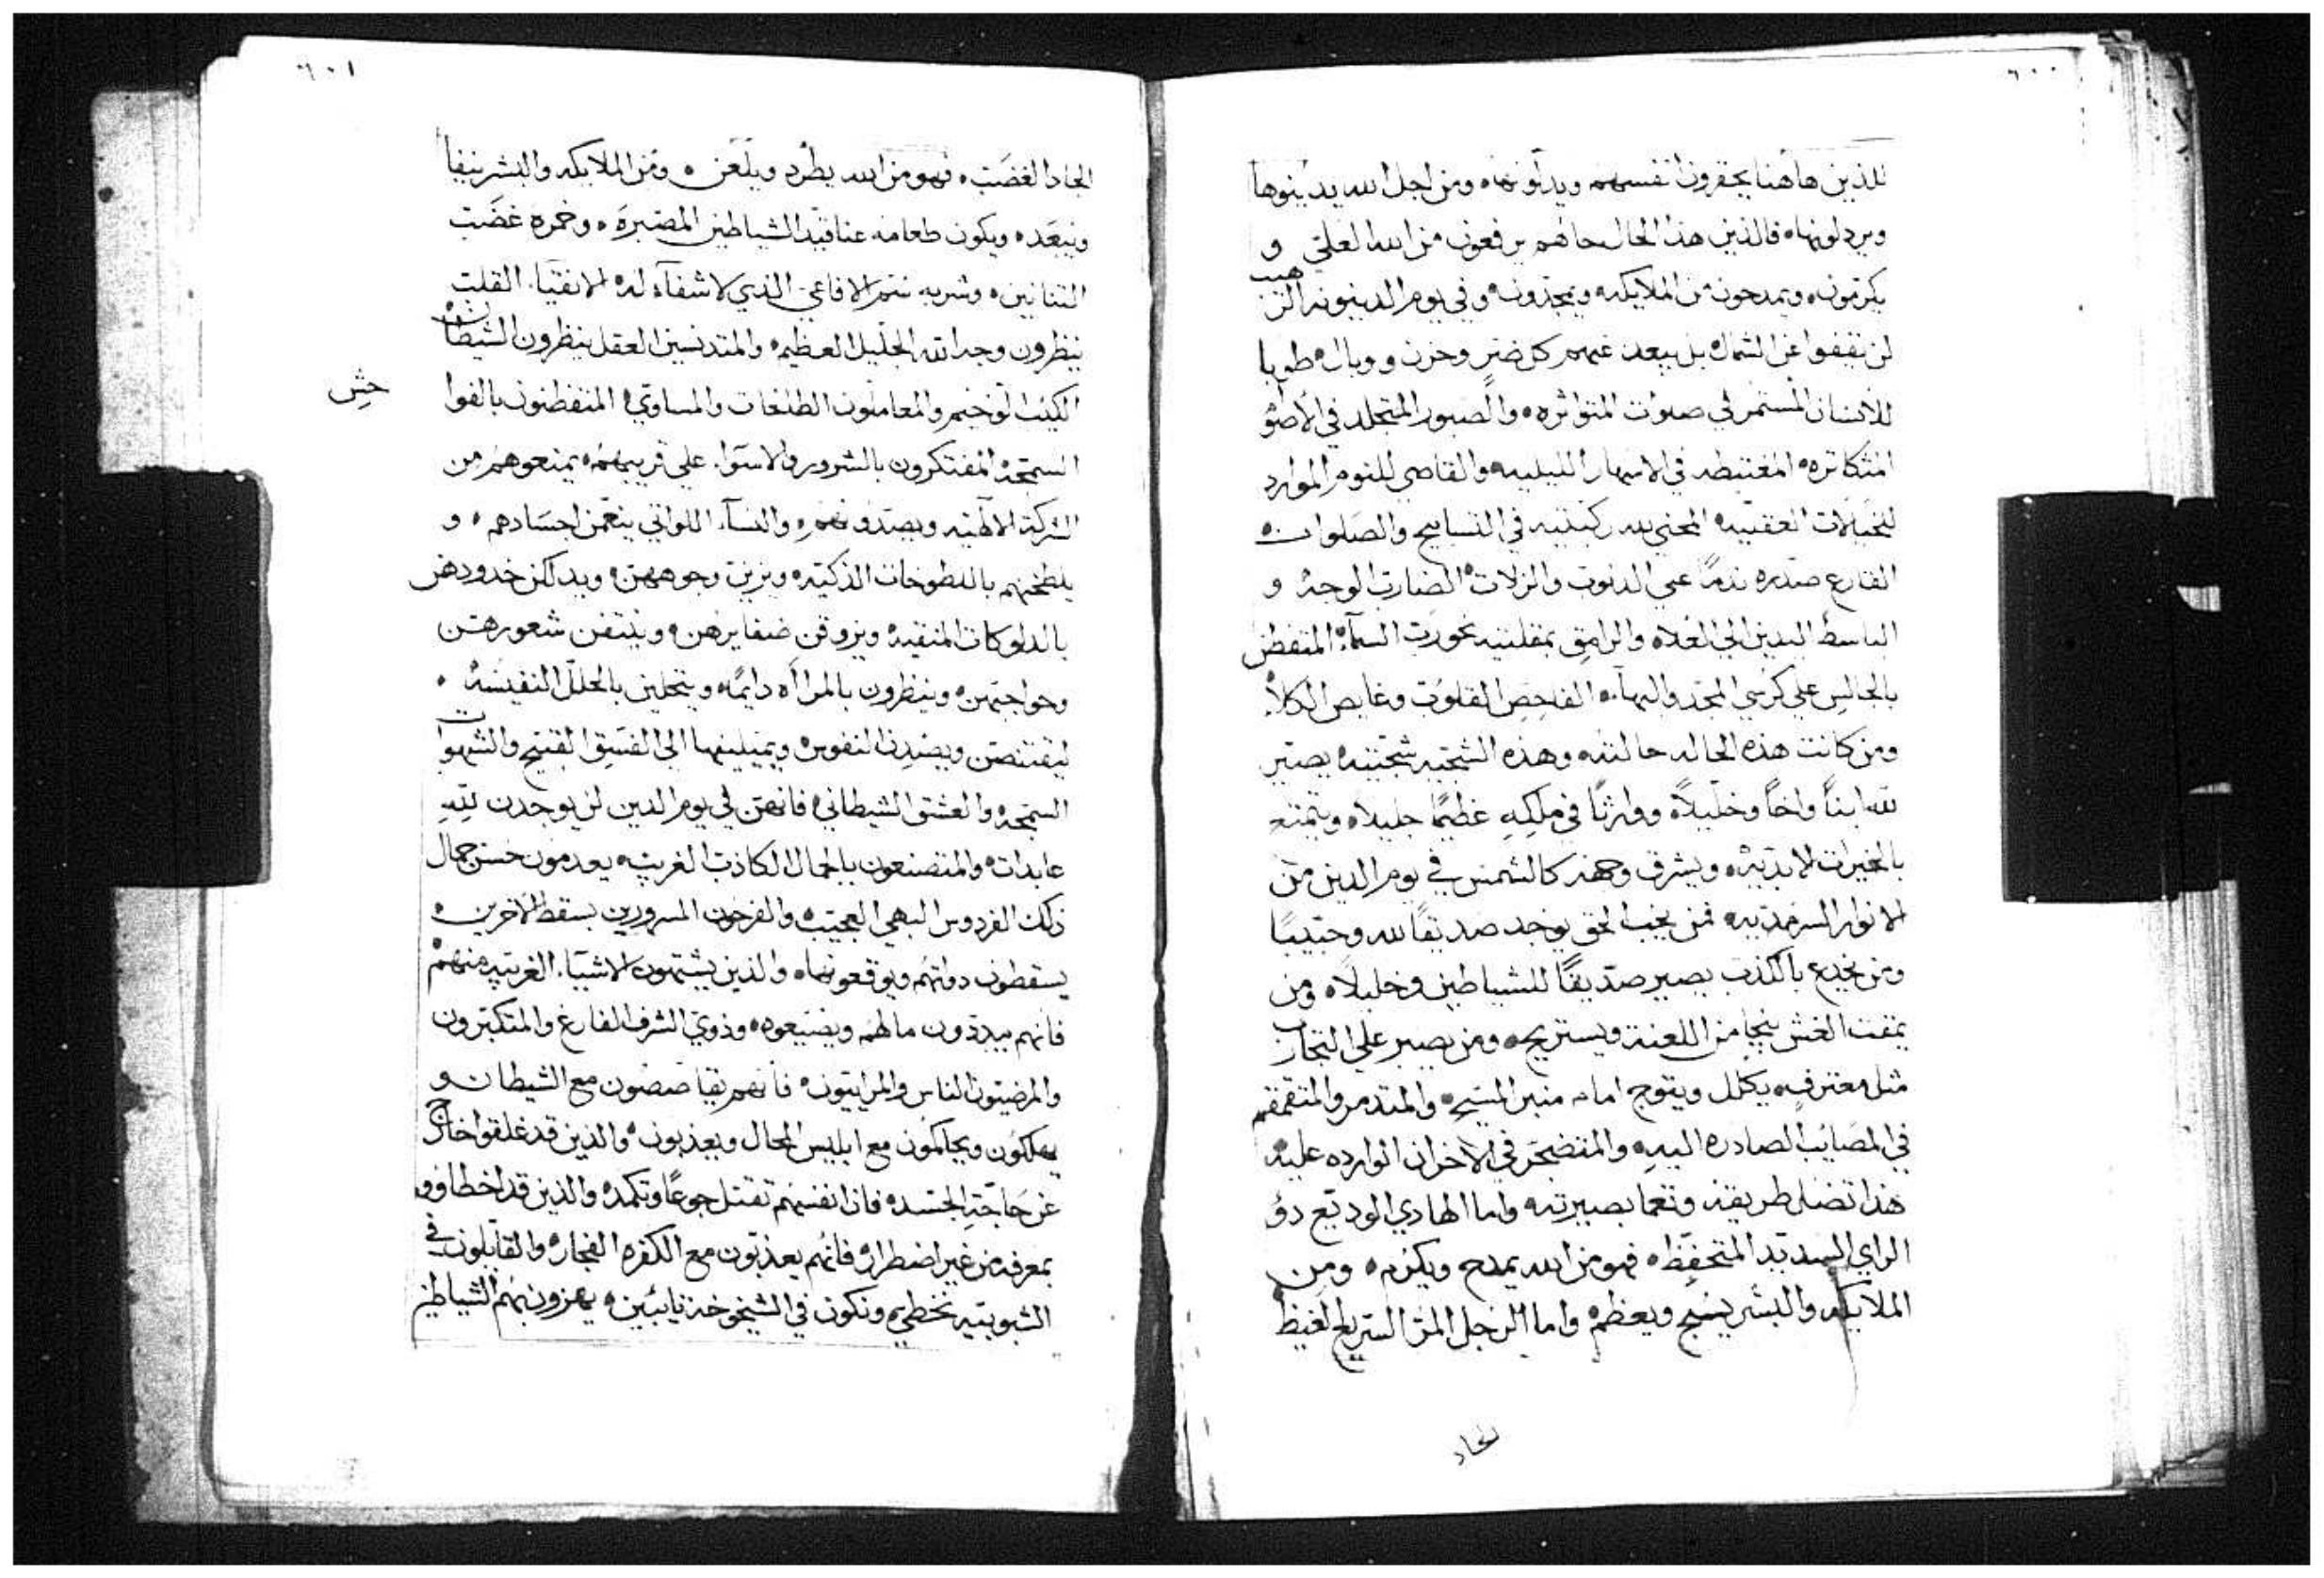 ٦٠٠
للذين هاهنا يحقرون انفسهم ويدلونها ومن اجل الله يدينوها
ويردلونها، فالذين هذا الحال حالهم يرفعون من الله العلي و
يكرمون، ويمدحون من الملايكه ويمجدون وفي يوم الدينونه الرهيب
لن يقفوا عن الشمال بل يبعد عنهم كل ضر وحزن ووبال، طوبا
للانسان المستمر في صلوات المتواتره، والصبور المتجلد في الاصوام
المتكاتره المغتبط في الاسهار الليليه والقاصي للنوم الموارد
للخيالات العقليه المحني لله ركبتيه في التسابيح والصلوات
القارع صدره ندمًا علي الدنوب والزلات الضارب الوجه و
الباسط اليدين الي العلاه والرامق بمقلتيه نحو رب السمآء المتفطن
بالجالس علي كرسي المجد والبهآء الفاحص القلوب وغايص الكلا
ومن كانت هذه الحاله حالته وهذه الشجيه شجيته يصير
لله ابنًا واخًا وخليلاً ووارثًا في ملكه عظيمًا جليلاً ويتمتع
بالخيرات الابديه ويشرق وجهه كالشمس في يوم الدين من
الانوار السرمديه فمن يحب الحق يوجد صديقًا لله وحبيبًا
ومن يخدع بالكذب يصير صديقًا للشياطين وخليلاً، ومن
يمقت الغش ينجا من اللعنة ويستريح، ومن يصبر علي التجارب
مثل معترف يكلل ويتوج امام منبر المسيح والمتدمر والمتقمقم
في المصايب الصادره اليه، والمتضجر في الاحزان الوارده عليه
هذا تضل طريقته وتعما بصيرته واما الهادي الوديع دو
الراي السديد المتحفظ فهو من الله يمدح ويكرم ومن
الملايكه والبشر يسبح ويعظم واما الرجل المر السريع الغيظ
الحاد
٦٠١
الحاد الغضب، فهو من الله يطرد ويلعن، ومن الملايكه والبشر ينفا
ويبعد، ويكون طعامه عناقيد الشياطين المصبره، وخمره غضب
التنانين، وشربه سم الافاعي الذي لا شفآء له الانقيآء القلب
ينظرون وجه الله الجليل العظيم والمتدنسين العقل ينظرون الشيطان
الكيب الوخيم والمعاملون الطلغات والمساوي المتفطنون بالفواحش
السمجه المفتكرون بالشرور والاسوآء علي قريبهم يمنعوهم من
الشركة الالهيه ويصدونهم والنسآء اللواتي ينعمن اجسادهم، و
يلطخنهم باللطوخات الذكيه ويزين وجوههن ويدلكن خدودهن
بالدلوكات المنقيه ويزوقن ضفايرهن وينتفن شعورهن
وحواجبهن وينظرون بالمرااة دايمًا، ويتحلين بالحلل النفيسه
ليقتنصن ويصيدن النفوس ويميلينها الي الفسق القبيح والشهوات
السمجه والعشق الشيطاني فانهن في يوم الدين لن يوجدن لله
عابدات والمتصنعون بالجمال الكاذب الغريب يعدمون حسن جمال
ذلك الفردوس البهي العجيب والفرحون المسرورين بسقطة الاخرين
يسقطون دواتهم ويوقعونها، والذين يشتهون الاشيآء الغريبه منهم
فانهم يبددون مالهم ويضيعوه وذوي الشرف الفارغ والمتكبرون
والمرضيون الناس والمراييون فانهم يقاصصون مع الشيطان و
يهلكون ويحاكمون مع ابليس المحال ويعذبون والذين قد غلقوا خارج
عن حاجة الجسد فان انفسهم تقتل جوعًا وتكمد والذين قد اخطاوو
بمعرفه من غير اضطرار فانهم يعذبون مع الكفره الفجار والقايلون في
الشبوبيه نخطي ونكون في الشيخوخة تايبين يهزون بهم الشياطين